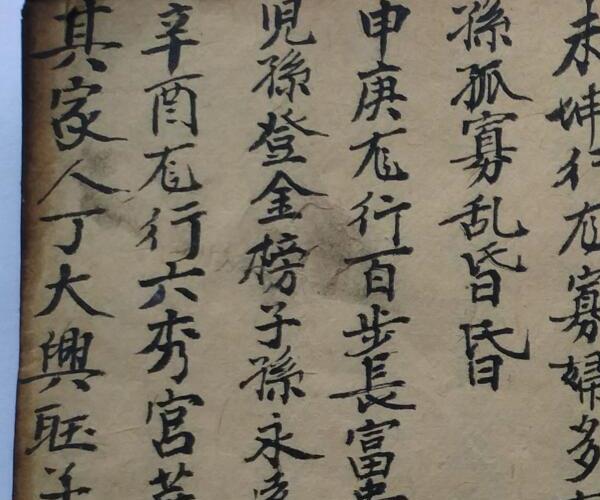 未坤行龙寡婦多
孫孤寡乱昏昏
申庚龙行百步長富貴
兒孫登金榜子孫永
辛酉龙行六秀宮
其家人丁大興旺